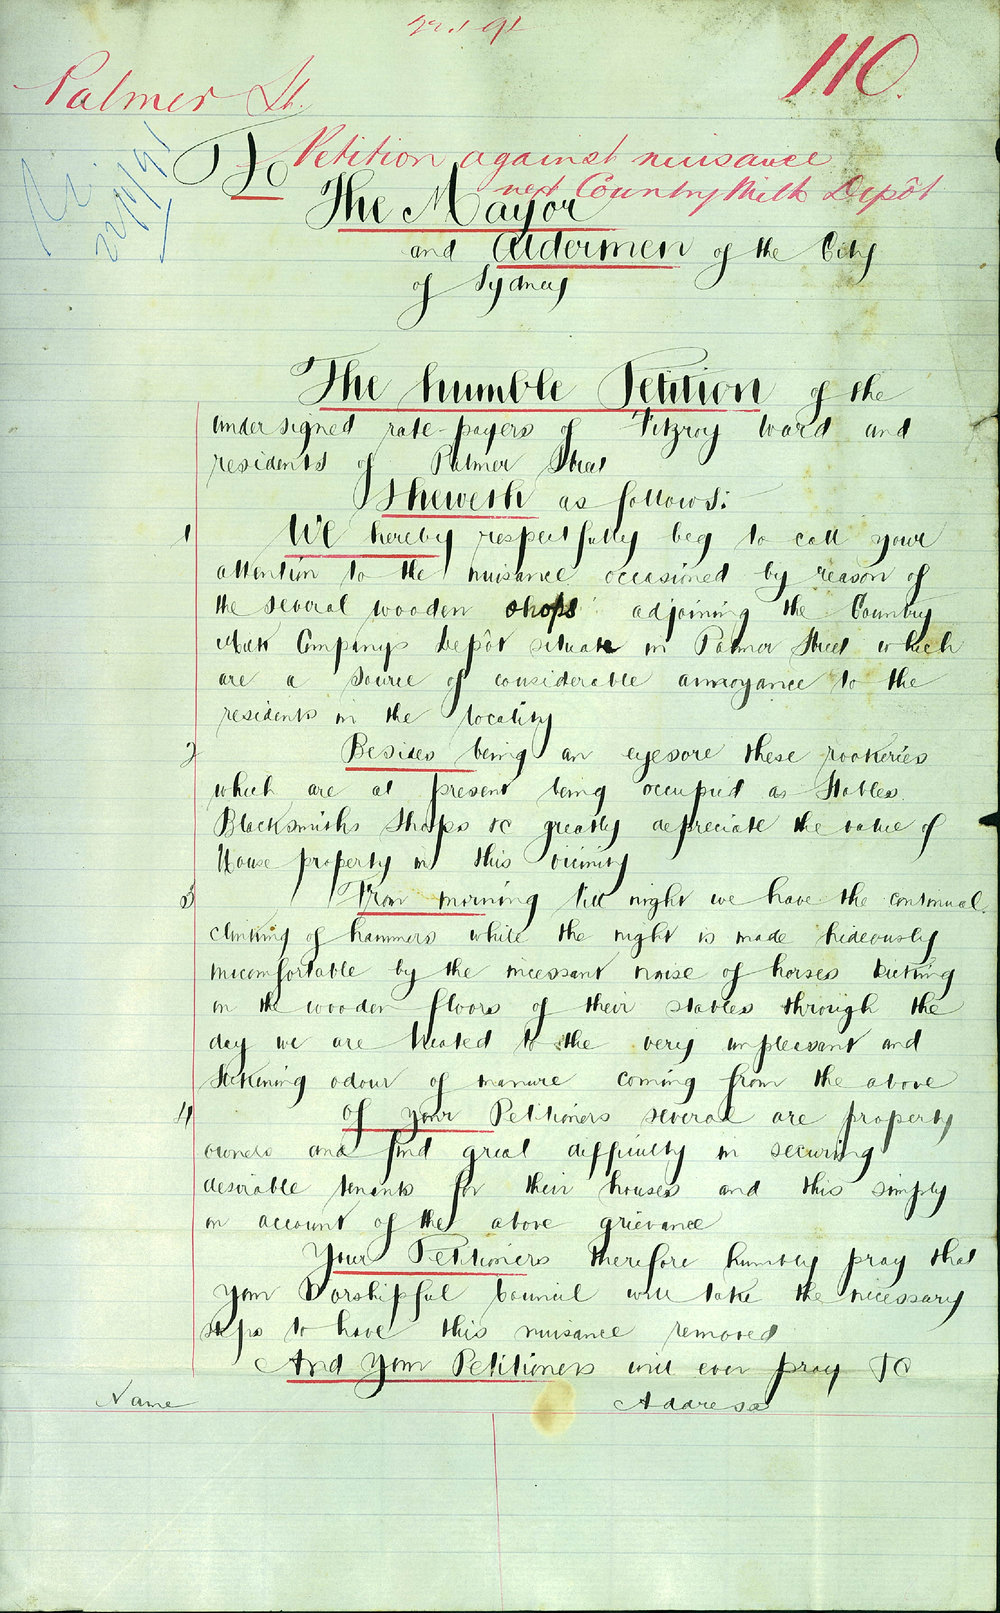 110
Palmer St.
22/1/91
Petition against nuisance
next Country Milk Depôt
To
The Mayor
and Aldermen of the City
of Sydney
The humble Petition of the
undersigned rate-payers of Fitzroy Ward and
residents of Palmer Street
sheweth as follows:
1 We hereby respectfully beg to call your
attention to the nuisance occasioned by reason of
the several wooden shops adjoining the Country
Milk Company's Depôt situate in Palmer Street which
are a source of considerable annoyance to the
residents in the locality
2 Besides being an eyesore these rookeries
which are at present being occupied as Stables
Blacksmiths Shops &c greatly depreciate the value of
House property in this vicinity
3 From morning till night we have the continual
clinking of hammers while the night is made hideously
uncomfortable by the incessant noise of horses kicking
on the wooden floors of their stables through the
day we are treated to the very unpleasant and
sickening odour of manure coming from the above
4 Of your Petitioners several are property
owners and find great difficulty in securing
desirable tenants for their houses and this simply
on account of the above grievance
Your Petitioners therefore humbly pray that
your Worshipful Council will take the necessary
steps to have this nuisance removed
And your Petitioners will ever pray &c
Name Address